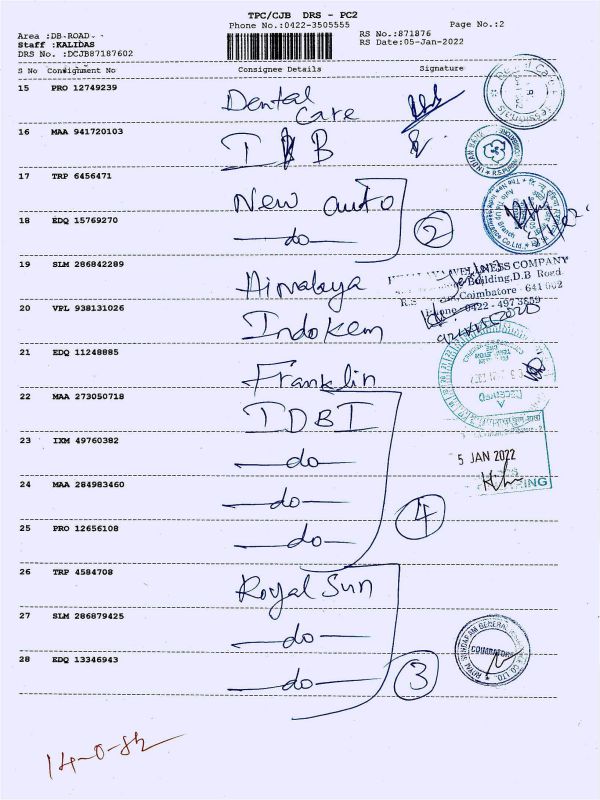 TPC/CJB DRS - PC2
Phone No.:0422-3505555
Page No.:2
Area :DB-ROAD
RS No.:871876
Staff :KALIDAS
RS Date:05-Jan-2022
DRS No. :DCJB87187602
S No Consignment No Consignee Details Signature
15 PRO 12749239 Dental Care
16 MAA 941720103
17 TRP 6456471 New auto
18 EDQ 15769270 do 2
19 SLM 286842289 Himalaya
WELLNESS COMPANY
Building, D.B Road.
Coimbatore - 641 002
0422 - 497 3859
20 VPL 938131026 Indokem
21 EDQ 11248885 Franklin
RECEIVED
22 MAA 273050718 IDBI
23 IXM 49760382 do
5 JAN 2022
24 MAA 284983460 do 4
25 PRO 12656108 do
26 TRP 4584708 Royal Sun
27 SLM 286879425 do
COIMBATORE
28 EDQ 13346943 do 3